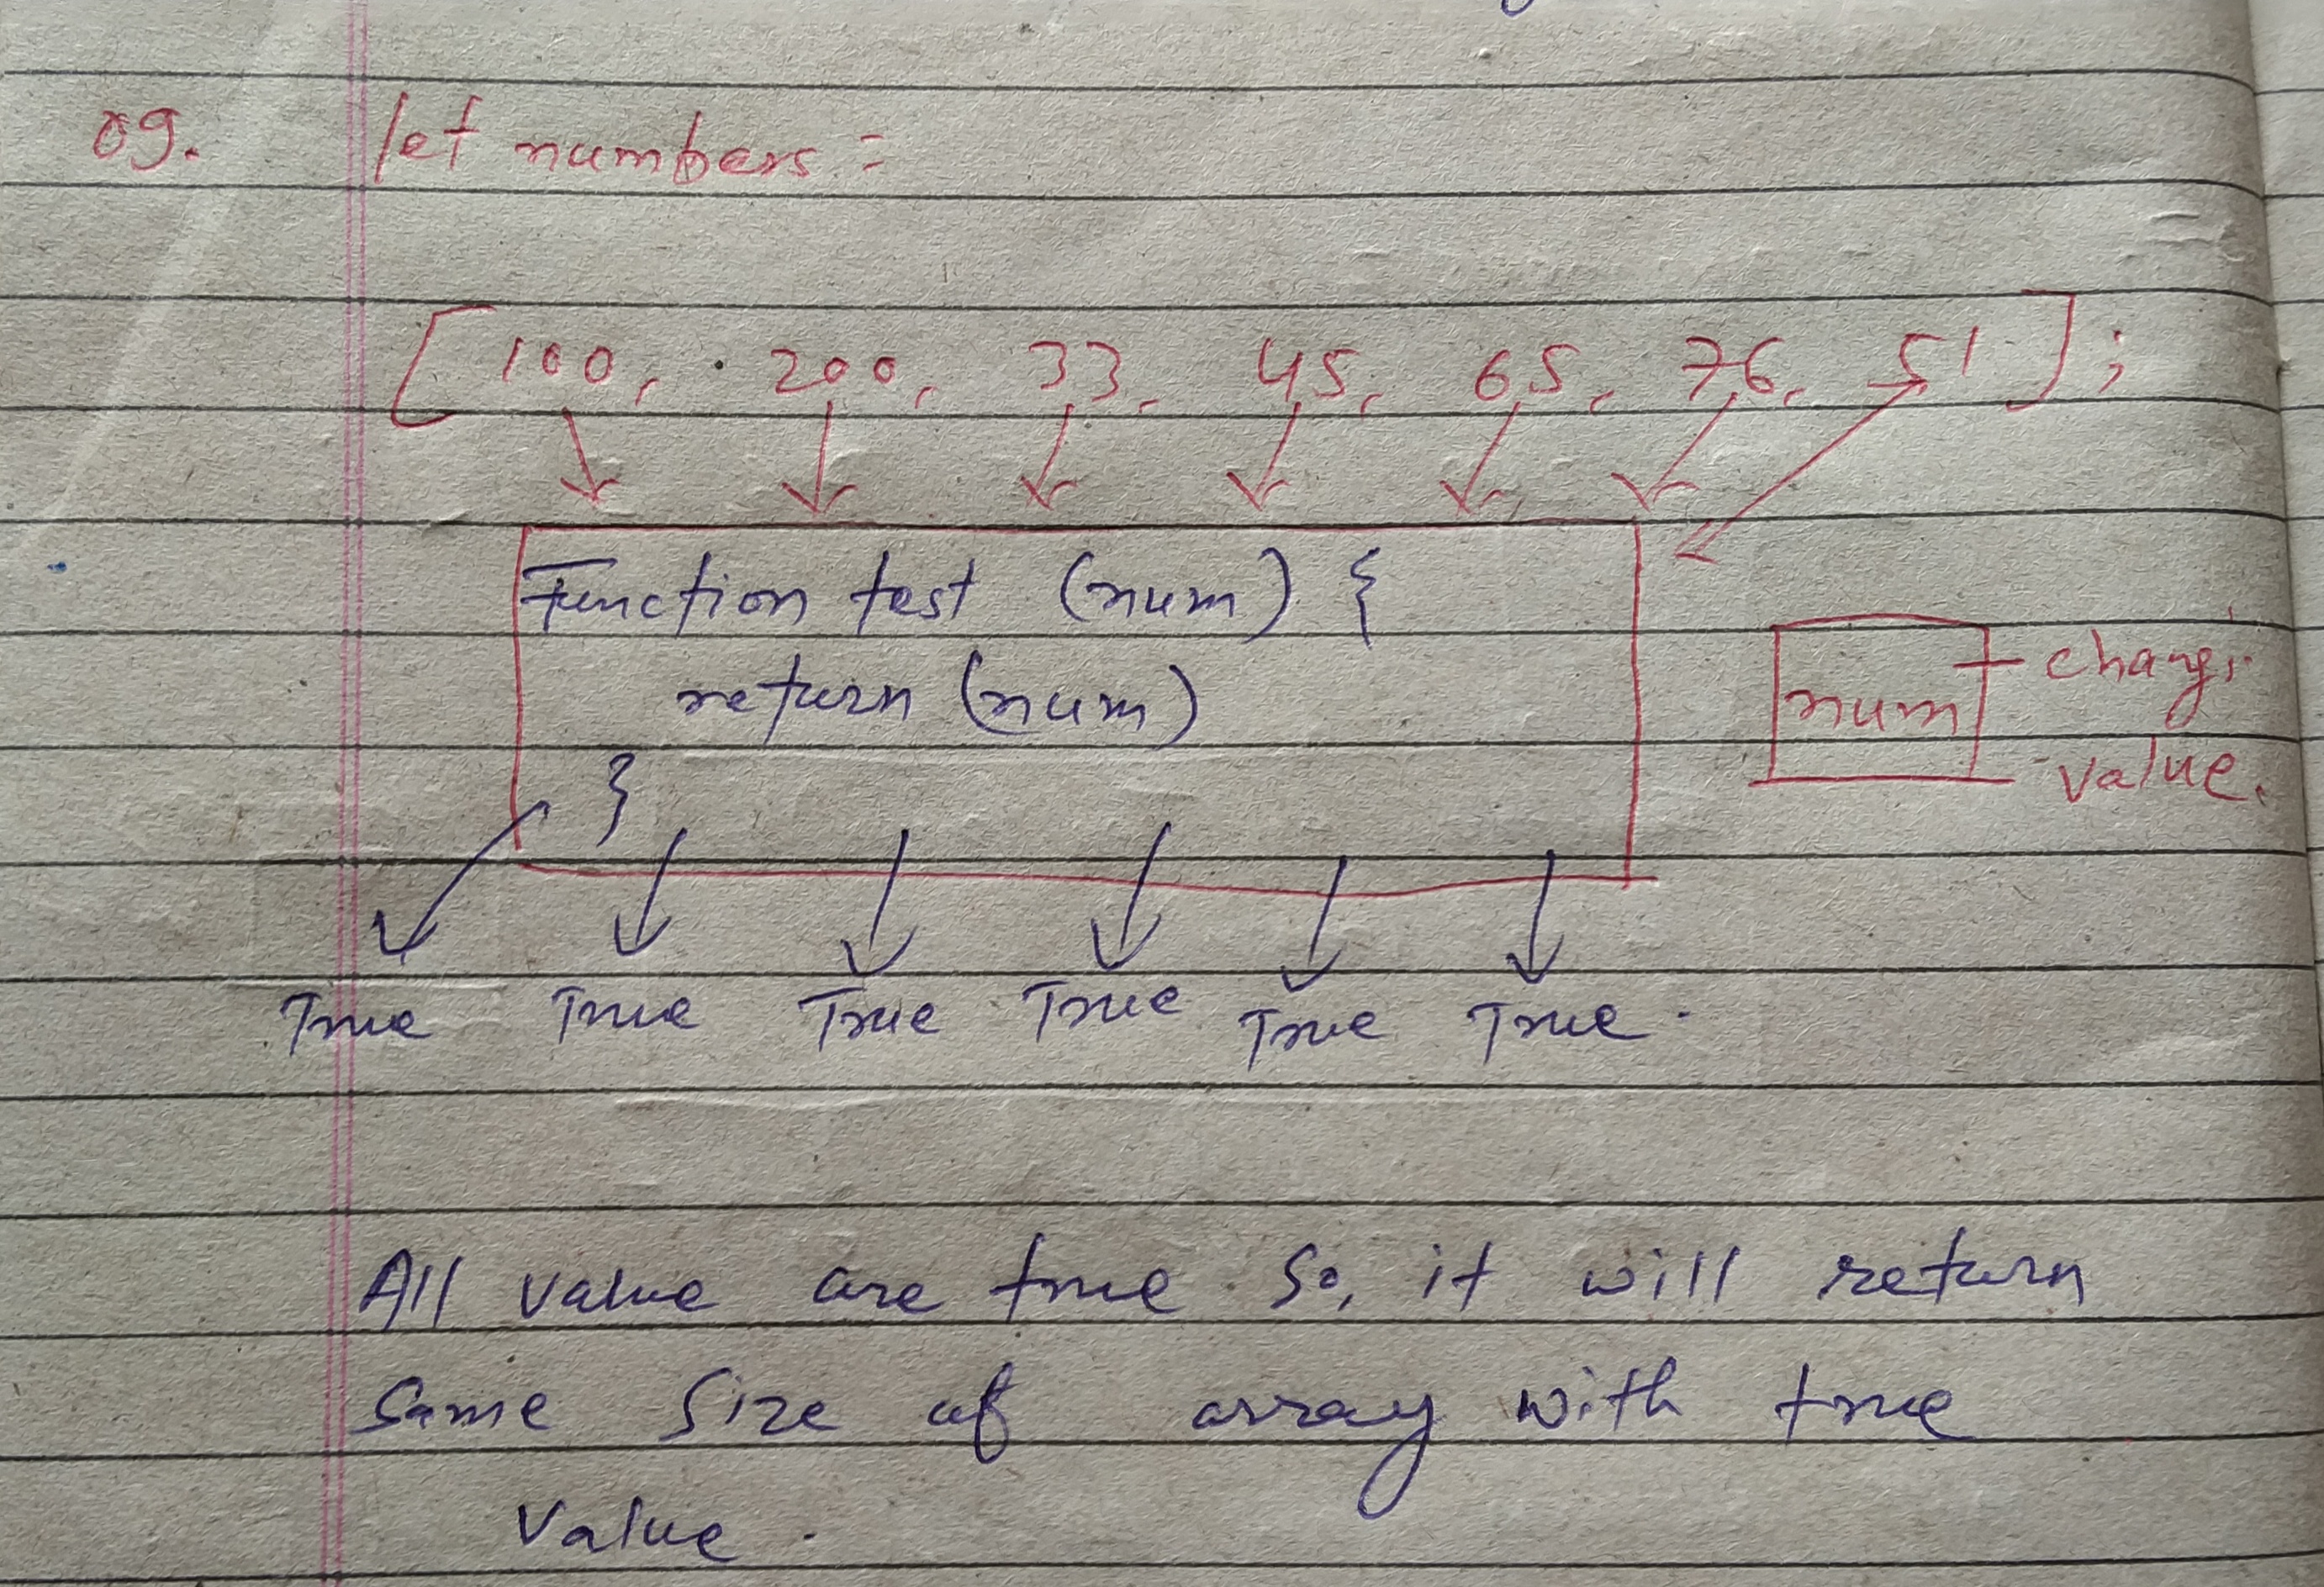 09. let numbers =
[100, 200, 33, 45, 65, 76, 51];
Function test (num) {
return (num)
}
num
value.
True True True True True True.
All value are true so, it will return
Same Size of array with true
Value.